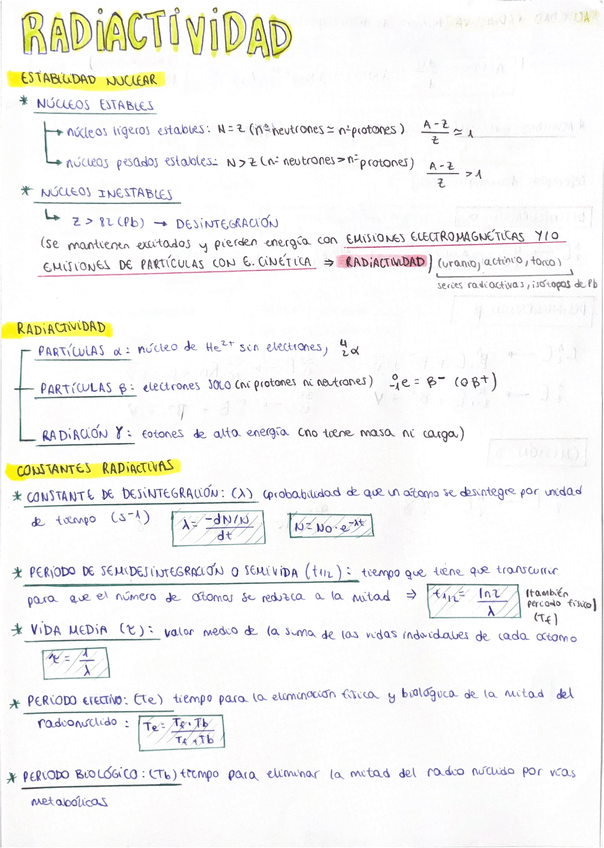 RADIACTIVIDAD
ESTABILIDAD NUCLEAR
* NÚCLEOS ESTABLES
núcleos ligeros estables: N=Z (nº neutrones ≃ nº protones) A-Z/Z ≃ 1
núcleos pesados estables: N>Z (nº neutrones > nº protones) A-Z/Z > 1
* NÚCLEOS INESTABLES
Z > 82 (Pb) → DESINTEGRACIÓN
(se mantienen excitados y pierden energía con EMISIONES ELECTROMAGNÉTICAS Y/O
EMISIONES DE PARTÍCULAS CON E. CINÉTICA ⇒ RADIACTIVIDAD) (uranio, actinio, torio)
series radiactivas, isótopos de Pb
RADIACTIVIDAD
PARTÍCULAS α: núcleo de He²⁺ sin electrones, ⁴₂α
PARTÍCULAS β: electrones SOLO (ni protones ni neutrones) ⁰₋₁e = β⁻ (o β⁺)
RADIACIÓN γ: fotones de alta energía (no tiene masa ni carga)
CONSTANTES RADIACTIVAS
* CONSTANTE DE DESINTEGRACIÓN: (λ) (probabilidad de que un átomo se desintegre por unidad
de tiempo (s-1) λ = -dN/N/dt N = N0·e^-λt
* PERIODO DE SEMIDESINTEGRACIÓN O SEMIVIDA (t1/2): tiempo que tiene que transcurrir
para que el número de átomos se reduzca a la mitad ⇒ t1/2 = ln2/λ (también
periodo físico)
(Tf)
* VIDA MEDIA (τ): valor medio de la suma de las vidas individuales de cada átomo
τ = 1/λ
* PERIODO EFECTIVO: (Te) tiempo para la eliminación física y biológica de la mitad del
radionúclido: Te = Tf·Tb/Tf+Tb
* PERIODO BIOLÓGICO: (Tb) tiempo para eliminar la mitad del radio núclido por vías
metabólicas